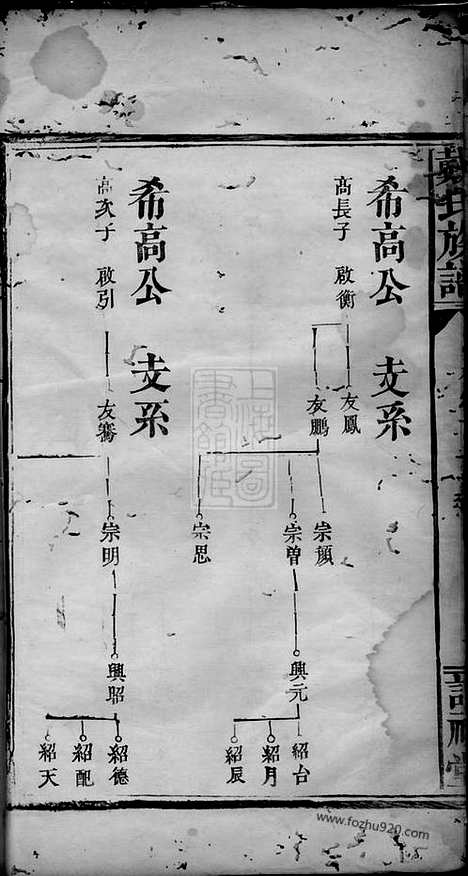 族譜
希高公 支系
高長子 啟衡
友鳳
友鵬
崇顏
崇曾
崇思
興元
紹台
紹月
紹辰
希高公 支系
高次子 啟引
友騫
崇明
興昭
紹德
紹配
紹天
上海圖書館藏
www.fozhu920.com